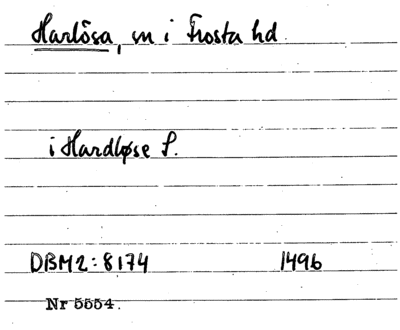 Harlösa, sn i Frosta hd.
i Hardløse S.
DBM2:8174 1496
Nr 5554.